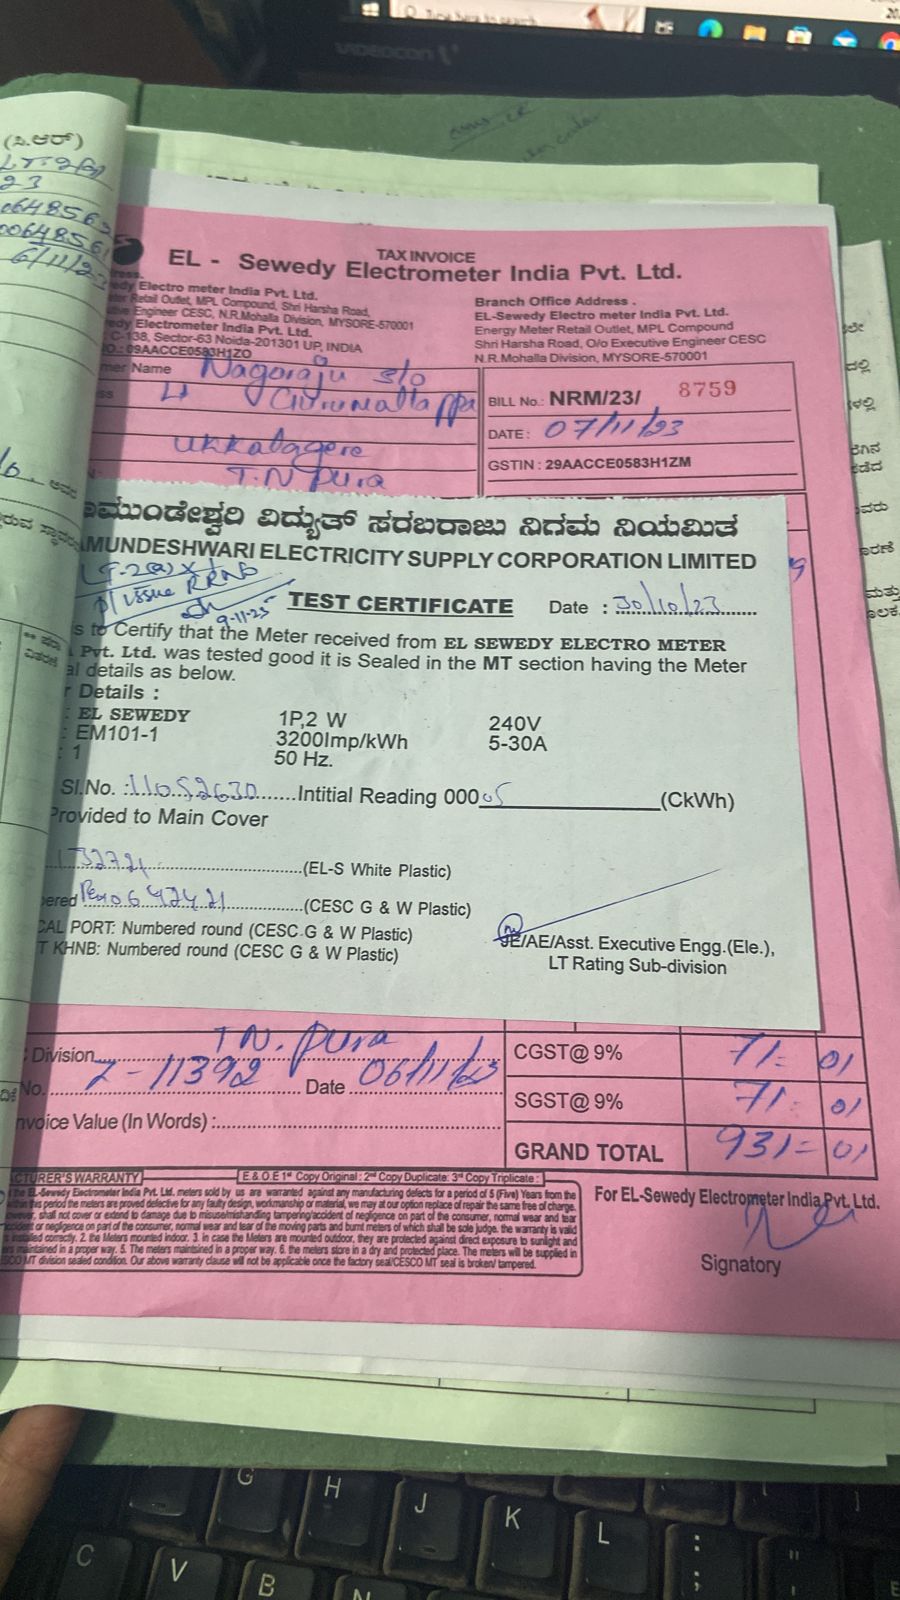 Type here to search
VIDEOCON
(ಸಿ.ಆರ್)
LT-2(a)
23
6/11/23
TAX INVOICE
EL - Sewedy Electrometer India Pvt. Ltd.
Electro meter India Pvt. Ltd.
Retail Outlet, MPL Compound, Shri Harsha Road,
Engineer CESC, N.R.Mohalla Division, MYSORE-570001
Electrometer India Pvt. Ltd.
C-138, Sector-63 Noida-201301 UP, INDIA
09AACCE0583H1ZO
Branch Office Address .
EL-Sewedy Electro meter India Pvt. Ltd.
Energy Meter Retail Outlet, MPL Compound
Shri Harsha Road, O/o Executive Engineer CESC
N.R.Mohalla Division, MYSORE-570001
Name Nagaraju S/o
Gurumallappa
Ukkalagere
T.N Pura
BILL No.: NRM/23/ 8759
DATE : 07/11/23
GSTIN : 29AACCE0583H1ZM
ಾಮುಂಡೇಶ್ವರಿ ವಿದ್ಯುತ್ ಸರಬರಾಜು ನಿಗಮ ನಿಯಮಿತ
AMUNDESHWARI ELECTRICITY SUPPLY CORPORATION LIMITED
LT-2(a) x 1
p/ issue RRNo
TEST CERTIFICATE Date : 30/10/23
to Certify that the Meter received from EL SEWEDY ELECTRO METER
Pvt. Ltd. was tested good it is Sealed in the MT section having the Meter
al details as below.
r Details :
: EL SEWEDY 1P,2 W 240V
: EM101-1 3200Imp/kWh 5-30A
: 1 50 Hz.
Sl.No. :11052630 Intitial Reading 00005 (CkWh)
Provided to Main Cover
132721 (EL-S White Plastic)
(CESC G & W Plastic)
CAL PORT: Numbered round (CESC G & W Plastic)
T KHNB: Numbered round (CESC G & W Plastic)
JE/AE/Asst. Executive Engg.(Ele.),
LT Rating Sub-division
Division T.N. Pura
No. 7-11392 Date 06/11/23
nvoice Value (In Words) :
CGST@ 9% 71= 01
SGST@ 9% 71- 01
GRAND TOTAL 931= 01
ACTURER'S WARRANTY E.& O.E 1st Copy Original : 2nd Copy Duplicate: 3rd Copy Triplicate :
the EL-Sewedy Electrometer India Pvt. Ltd. meters sold by us are warranted against any manufacturing defects for a period of 5 (Five) Years from the
within this period the meters are proved defective for any faulty design, workmanship or material, we may at our option replace of repair the same free of charge.
however, shall not cover or extend to damage due to misuse/mishandling tampering/accident of negligence on part of the consumer, normal wear and tear
accident or negligence on part of the consumer, normal wear and tear of the moving parts and burnt meters of which shall be sole judge. the warranty is valid
installed correctly, 2. the Meters mounted indoor. 3. in case the Meters are mounted outdoor, they are protected against direct exposure to sunlight and
maintained in a proper way. 5. The meters maintained in a proper way. 6. the meters store in a dry and protected place. The meters will be supplied in
MT division sealed condition. Our above warranty clause will not be applicable once the factory seal/CESCO MT seal is broken/ tampered.
For EL-Sewedy Electrometer India Pvt. Ltd.
Signatory
G H J K L
C V B N